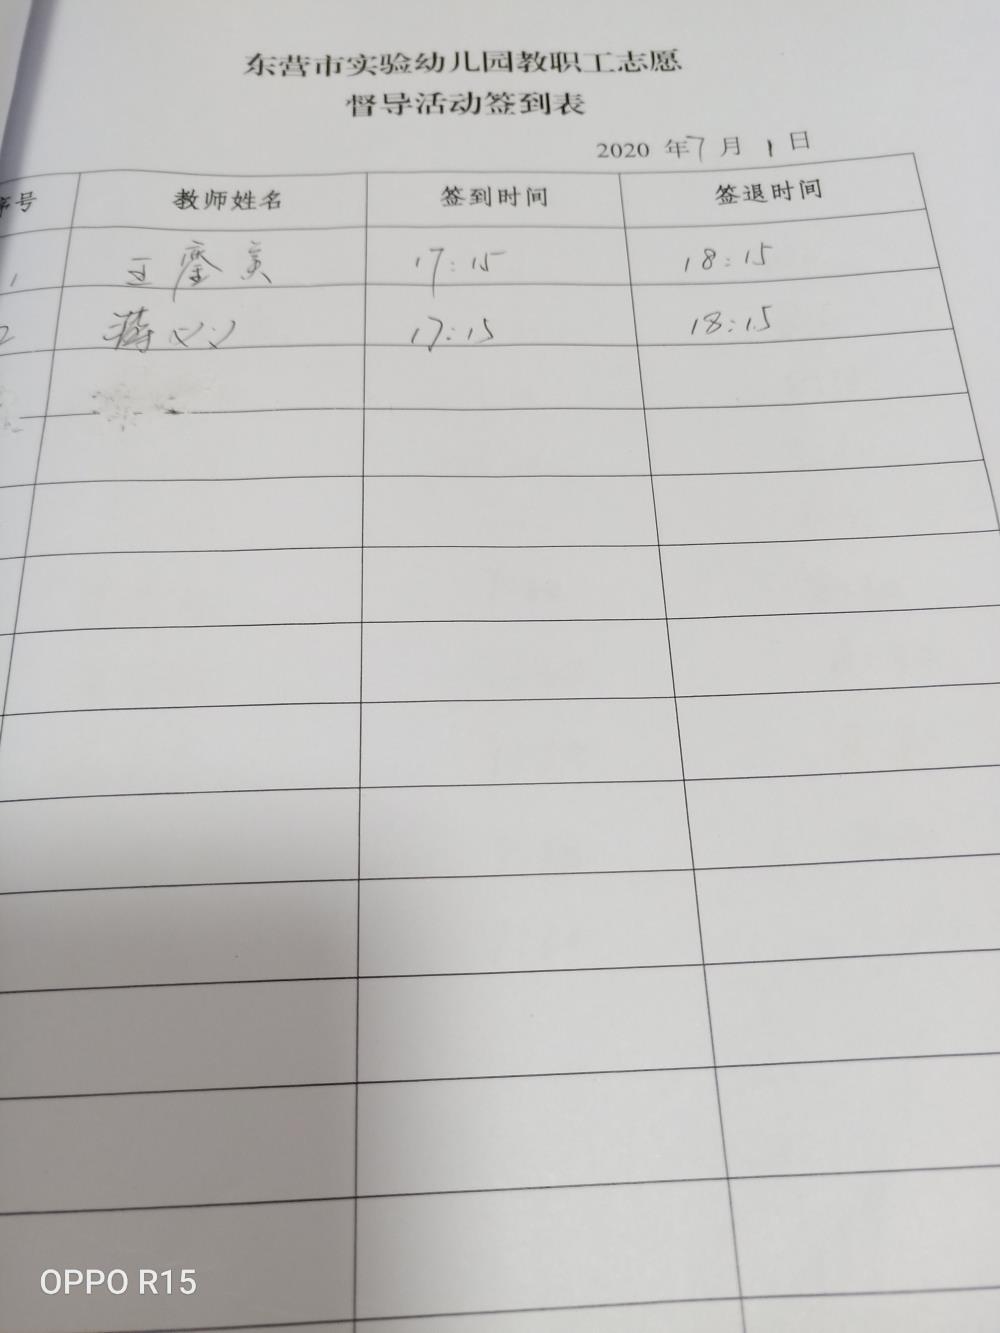 东营市实验幼儿园教职工志愿
督导活动签到表
2020 年7月1日
序号 教师姓名 签到时间 签退时间
1 王 美 17:15 18:15
2 蒋心心 17:15 18:15
OPPO R15